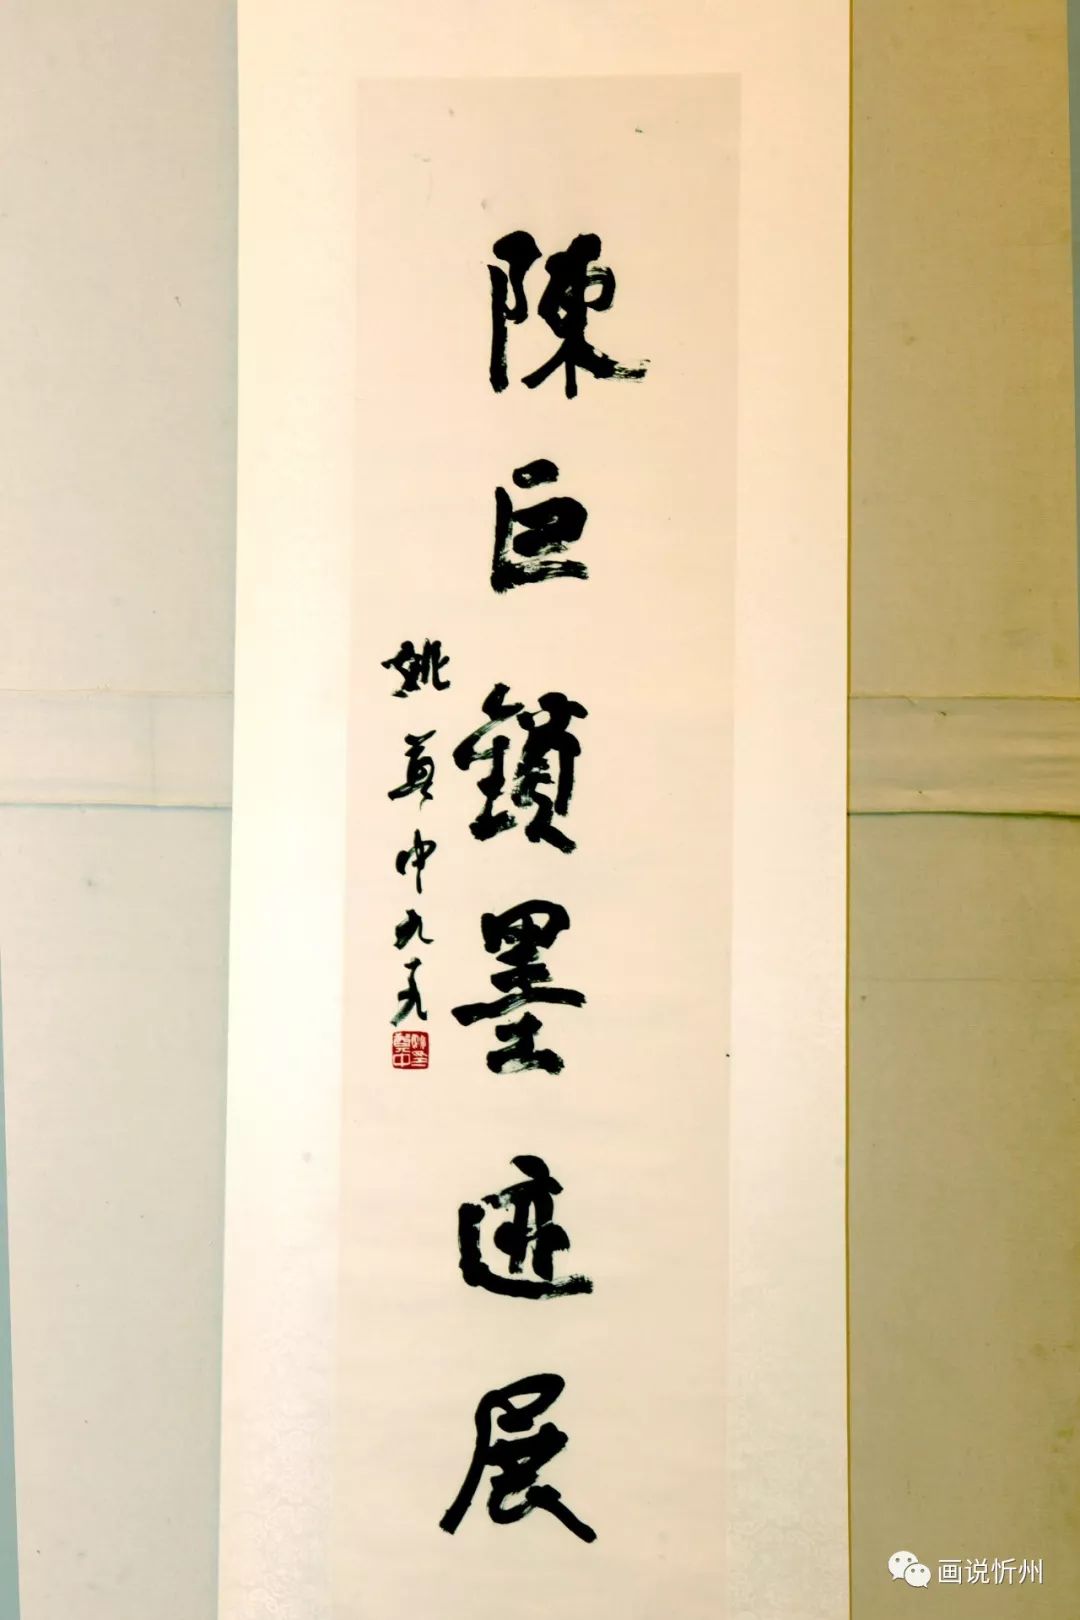 陳巨鎖墨迹展
姚奠中九十九
画说忻州